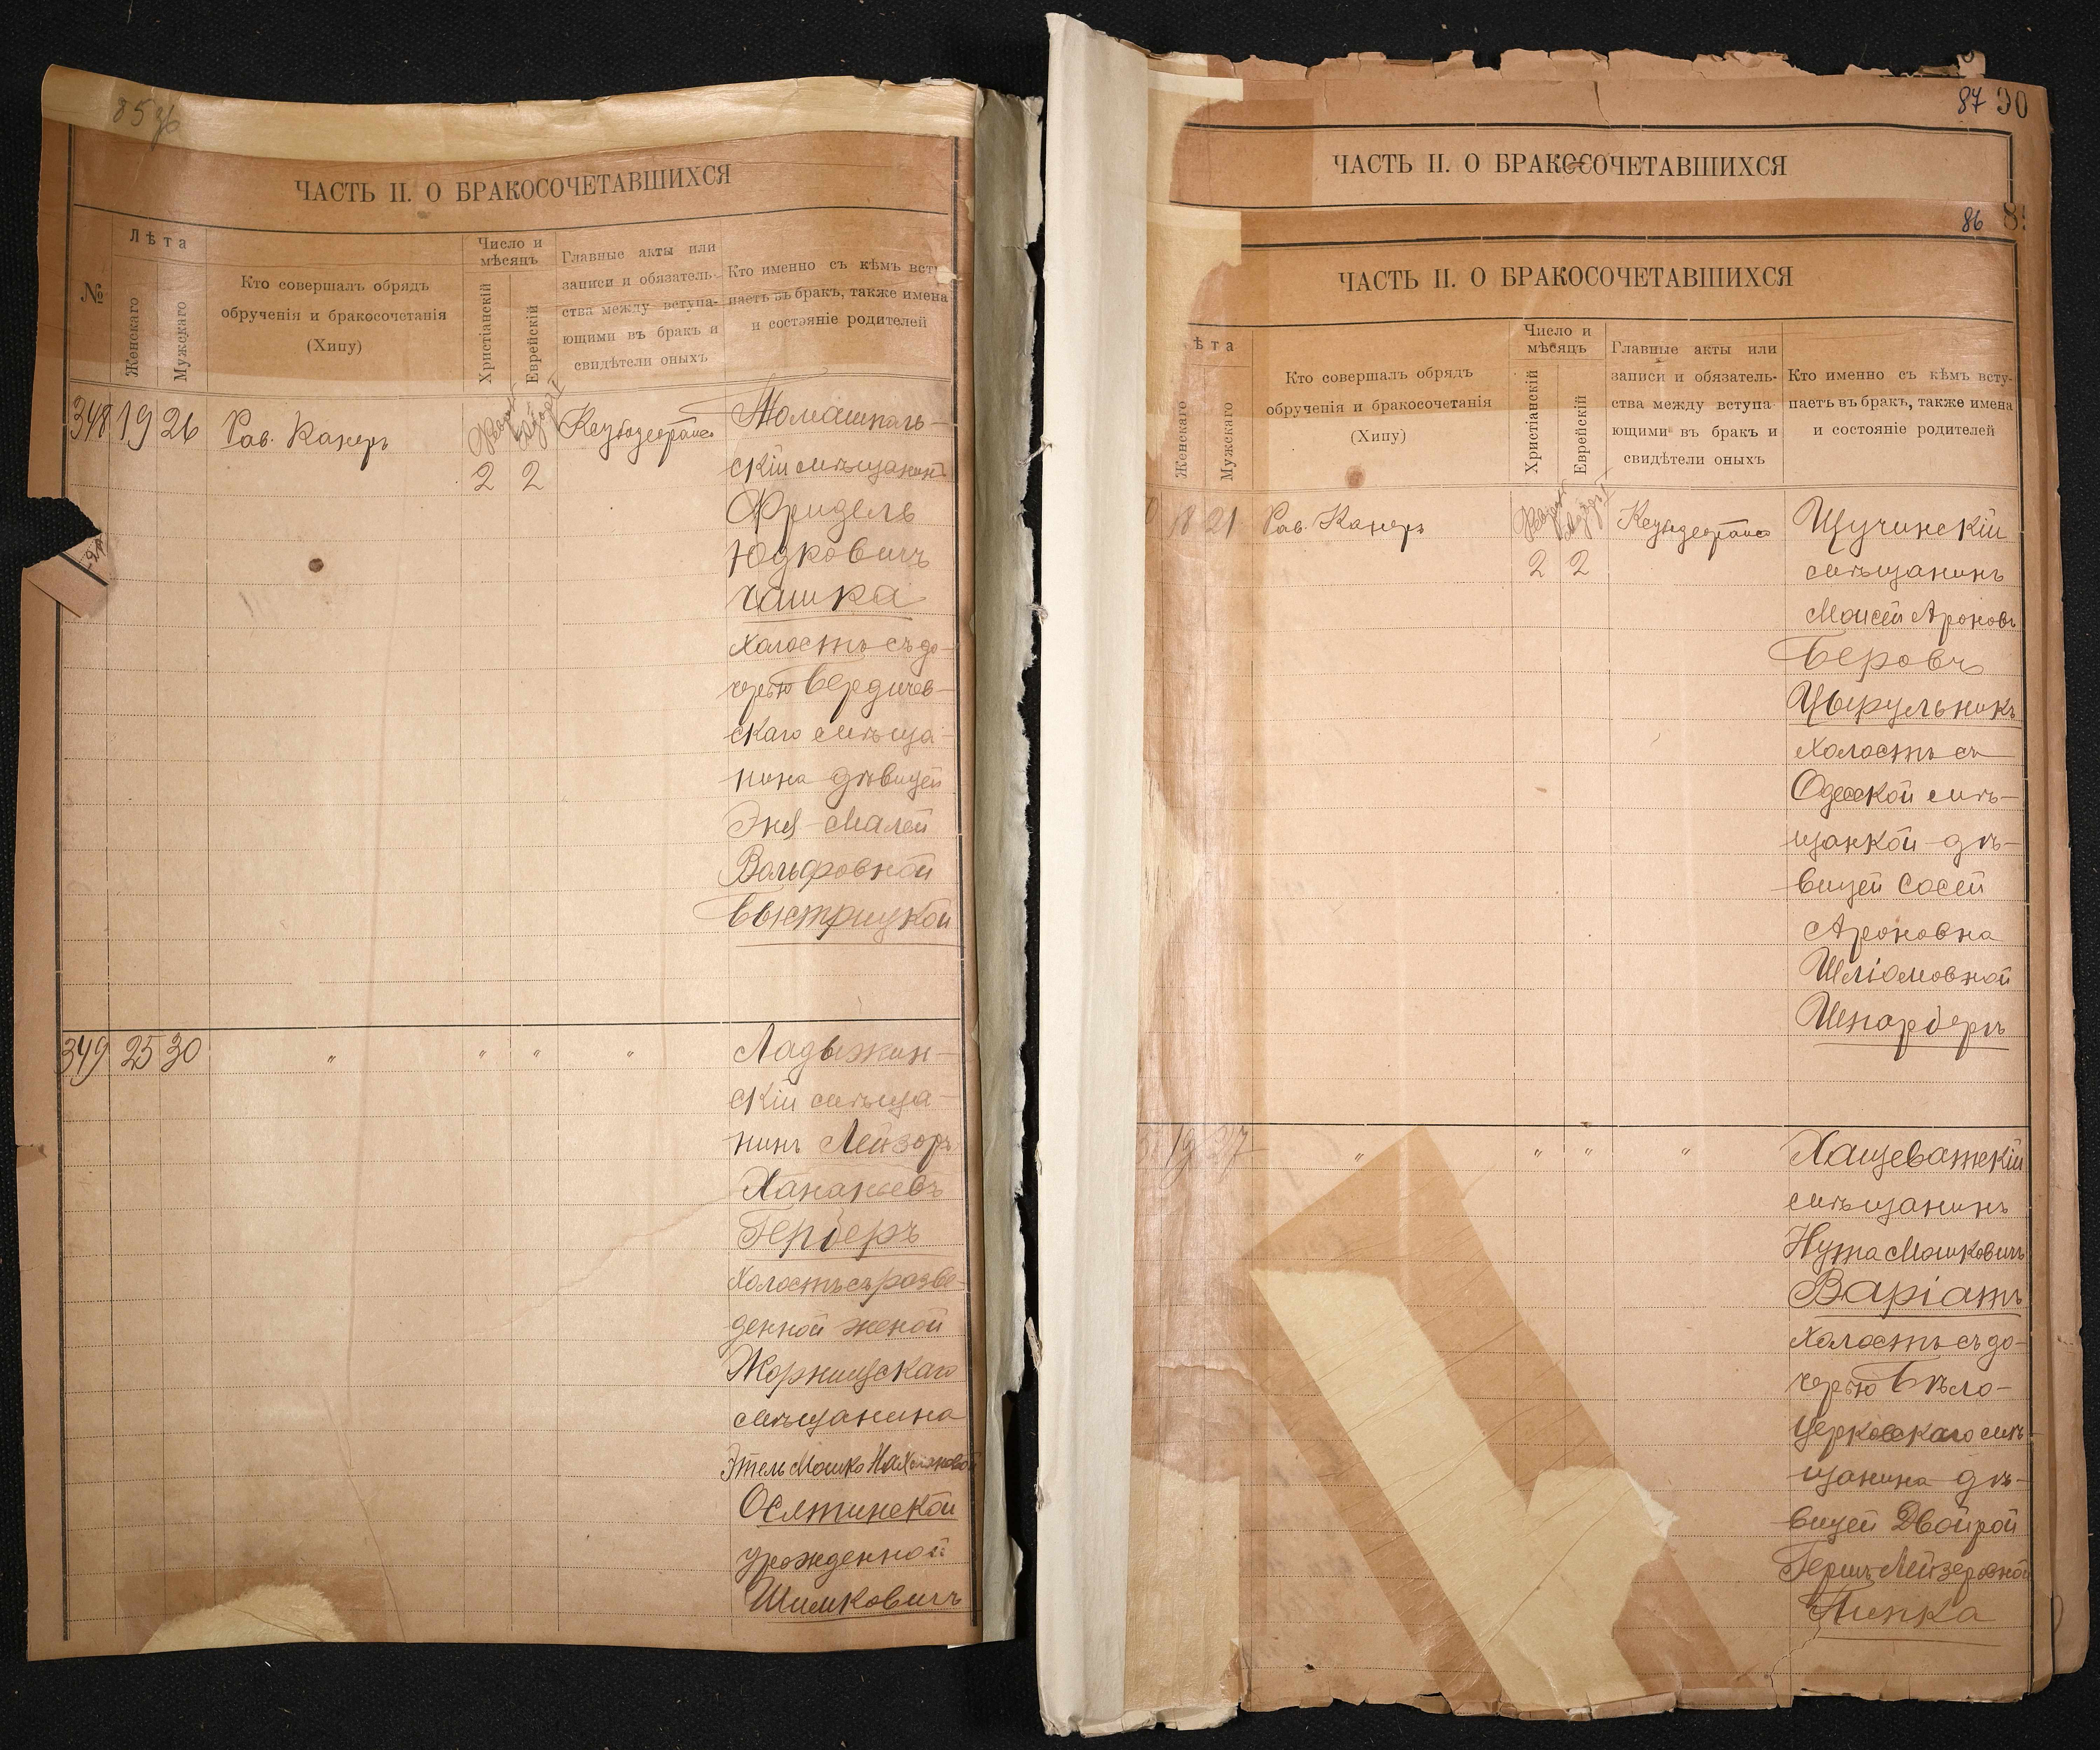 85
ЧАСТЬ II. О БРАКОСОЧЕТАВШИХСЯ
№
Лѣта
Женскаго
Мужескаго
Кто совершалъ обрядъ
обрученія и бракосочетанія
(Хипу)
Число и
мѣсяцъ
Христіанскій
Еврейскій
Главные акты или
записи и обязатель-
ства между вступа-
ющими въ бракъ и
свидѣтели оныхъ
Кто именно съ кѣмъ всту
паетъ въ бракъ, также имена
и состояніе родителей
348 19 26 Рав. Канеръ
2 2
Томашполь-
скій мѣщанинъ
Фридель
Юдковичъ
Чашка
холостъ съ до-
черью Бердичев-
скаго мѣща-
нина дѣвицей
Эня-Малей
Вольфовной
Быстрицкой
349 25 30 " " " "
Ладыжин-
скій мѣща-
нинъ Лейзоръ
Хананьевъ
Герберъ
холостъ съ разве-
денной женой
Жорнищскаго
мѣщанина
Этель Мошко
Осятинской
урожденной
Шимковичъ
87 90
ЧАСТЬ II. О БРАКОСОЧЕТАВШИХСЯ
86
ЧАСТЬ II. О БРАКОСОЧЕТАВШИХСЯ
ѣта
Женскаго
Мужскаго
Кто совершалъ обрядъ
обрученія и бракосочетанія
(Хипу)
Число и
мѣсяцъ
Христіанскій
Еврейскій
Главные акты или
записи и обязатель-
ства между вступа-
ющими въ бракъ и
свидѣтели оныхъ
Кто именно съ кѣмъ всту-
паетъ въ бракъ, также имена
и состояніе родителей
0 18 21 Рав. Канеръ
2 2
Щучинскій
мѣщанинъ
Моисей Ароновъ
Беровъ
Цырульникъ
холостъ съ
Одесской мѣ-
щанкой дѣ-
вицей Сосей
Ароновна
Шліомовной
Шнарберъ
19 27 " " " "
Хащеватскій
мѣщанинъ
Нута Мошковичъ
Варіатъ
холостъ съ до-
черью Бѣло-
церковскаго мѣ-
щанина дѣ-
вицей Двойрой
Гершъ Лейзеровной
Пинка